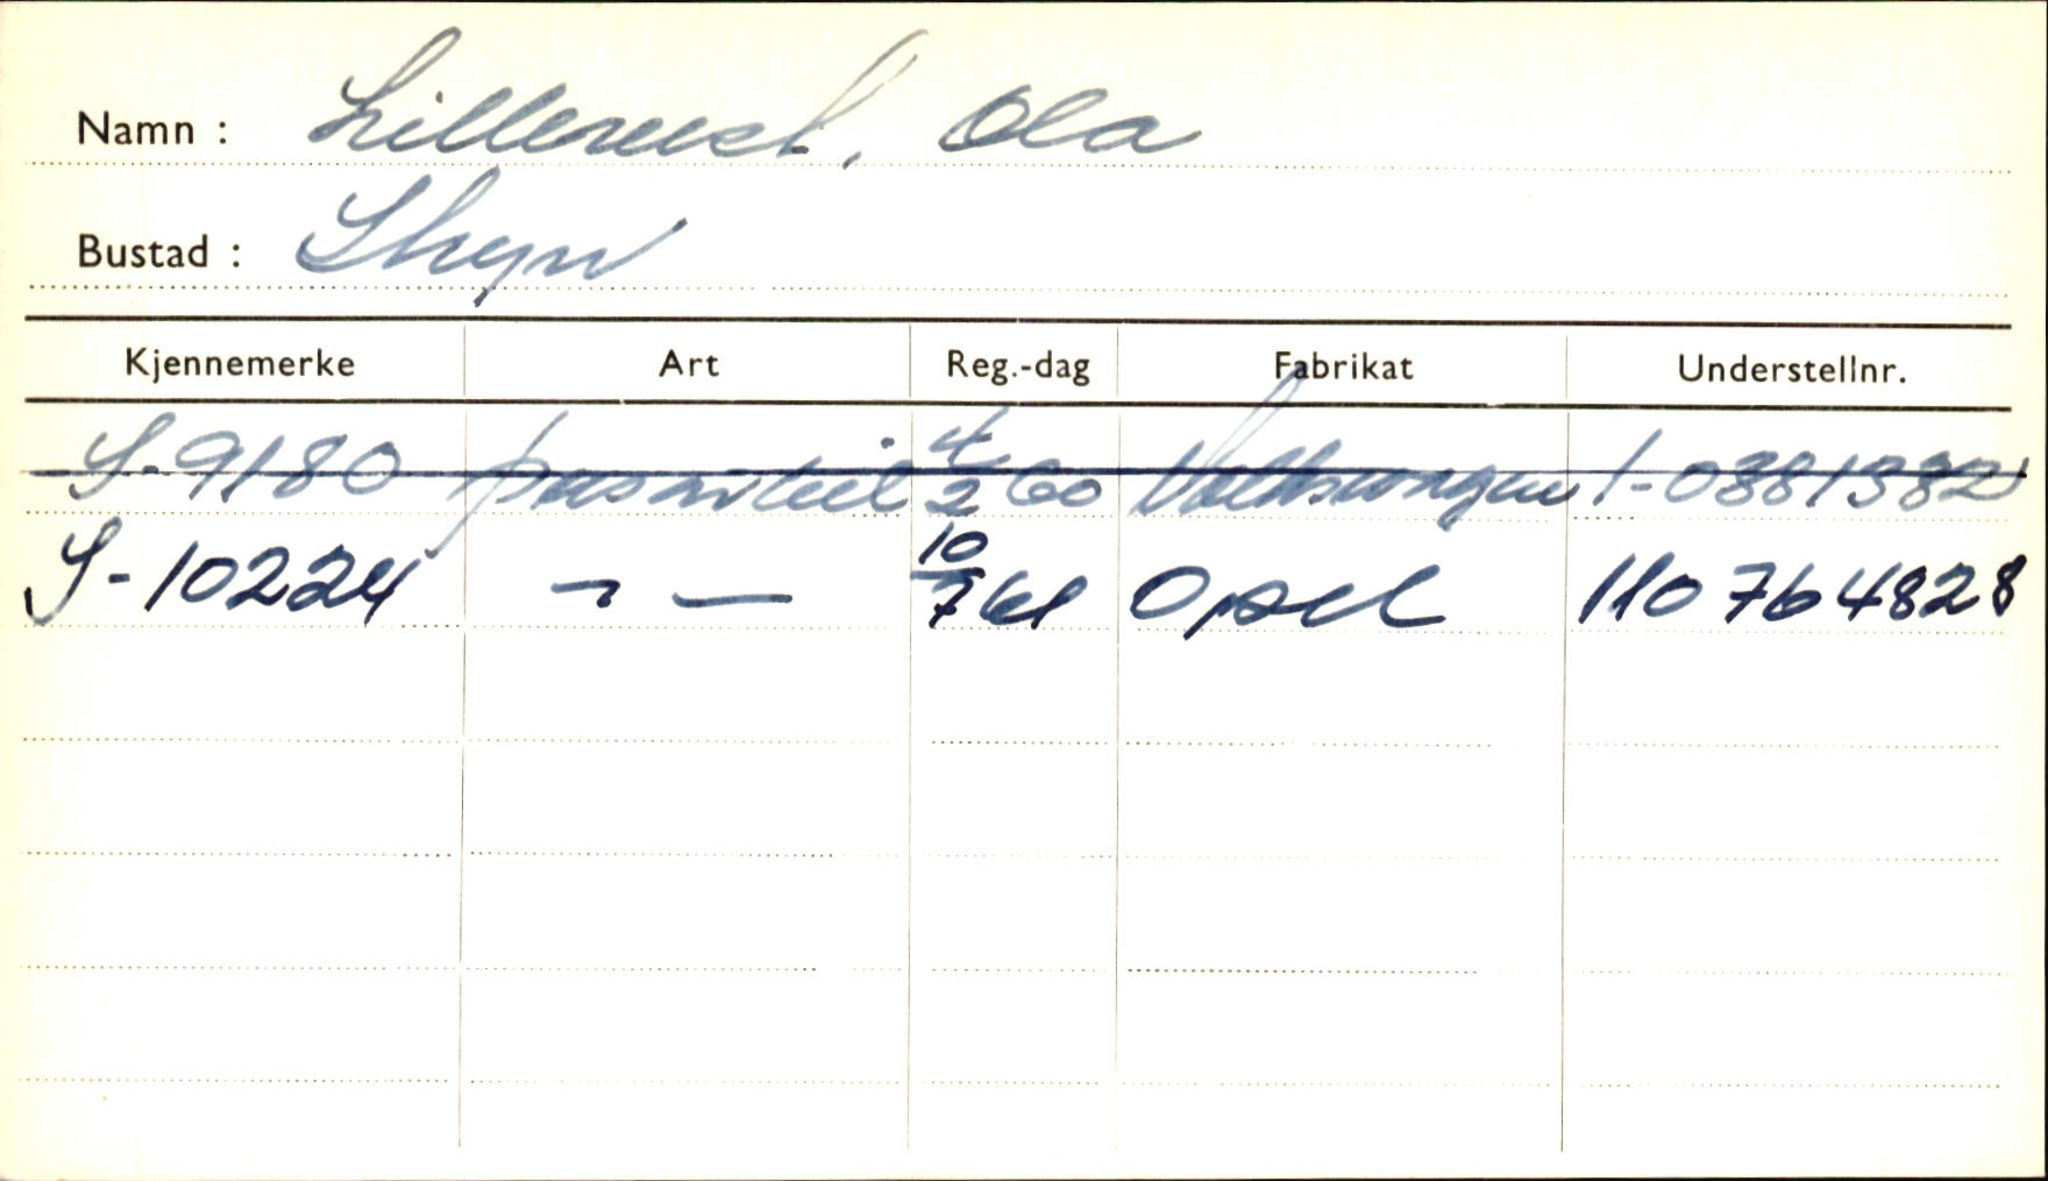 Namn : Lillerusl, Ola
Bustad : Stryn
Kjennemerke Art Reg.-dag Fabrikat Understellnr.
S-9180 personbil 4/2 60 Volkswagen 1-0381382
S-10224 -"- 10/7 61 Opel 110764828